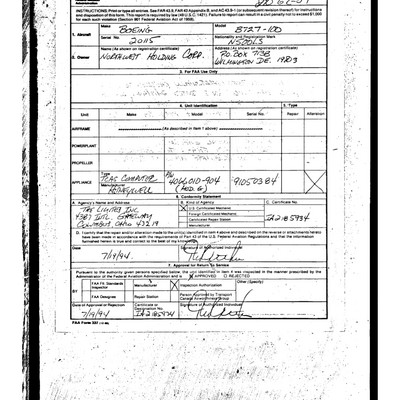 Administration
INSTRUCTIONS: Print or type all entries. See FAR 43.9, FAR 43 Appendix B, and AC 43.9-1 (or subsequent revision thereof) for instructions
and disposition of this form. This report is required by law (49 U.S.C. 1421). Failure to report can result in a civil penalty not to exceed $1,000
for each such violation (Section 901 Federal Aviation Act of 1958).
1. Aircraft
Make
BOEING
Model
B727-100
Serial No.
20115
Nationality and Registration Mark
2. Owner
Name (As shown on registration certificate)
NORTHWEST HOLDING CORP.
Address (As shown on registration certificate)
P.O. BOX 7138
WILMINGTON DE. 19803
3. For FAA Use Only
4. Unit Identification
5. Type
Unit
Make
Model
Serial No.
Repair
Alteration
AIRFRAME
(As described in Item 1 above)
POWERPLANT
PROPELLER
APPLIANCE
Type
TCAS COMPUTER
Manufacturer
HONEYWELL
P/N
4066010-904
(MOD. G)
91050384
X
6. Conformity Statement
A. Agency's Name and Address
B. Kind of Agency
C. Certificate No.
4381 INTL. GATEWAY
COLUMBUS, OHIO 43219
X
U.S. Certificated Mechanic
Foreign Certificated Mechanic
Certificated Repair Station
Manufacturer
IA2185934
D. I certify that the repair and/or alteration made to the unit(s) identified in item 4 above and described on the reverse or attachments hereto
have been made in accordance with the requirements of Part 43 of the U.S. Federal Aviation Regulations and that the information
furnished herein is true and correct to the best of my knowledge.
Date
7/19/94
Signature of Authorized Individual
7. Approval for Return To Service
Pursuant to the authority given persons specified below, the unit identified in item 4 was inspected in the manner prescribed by the
Administrator of the Federal Aviation Administration and is
X APPROVED
REJECTED
BY
FAA Flt. Standards
Inspector
Manufacturer
X
Inspection Authorization
Other (Specify)
FAA Designee
Repair Station
Person Approved by Transport
Canada Airworthiness Group
Date of Approval or Rejection
7/19/94
Certificate or
Designation No.
IA2185934
Signature of Authorized Individual
FAA Form 337